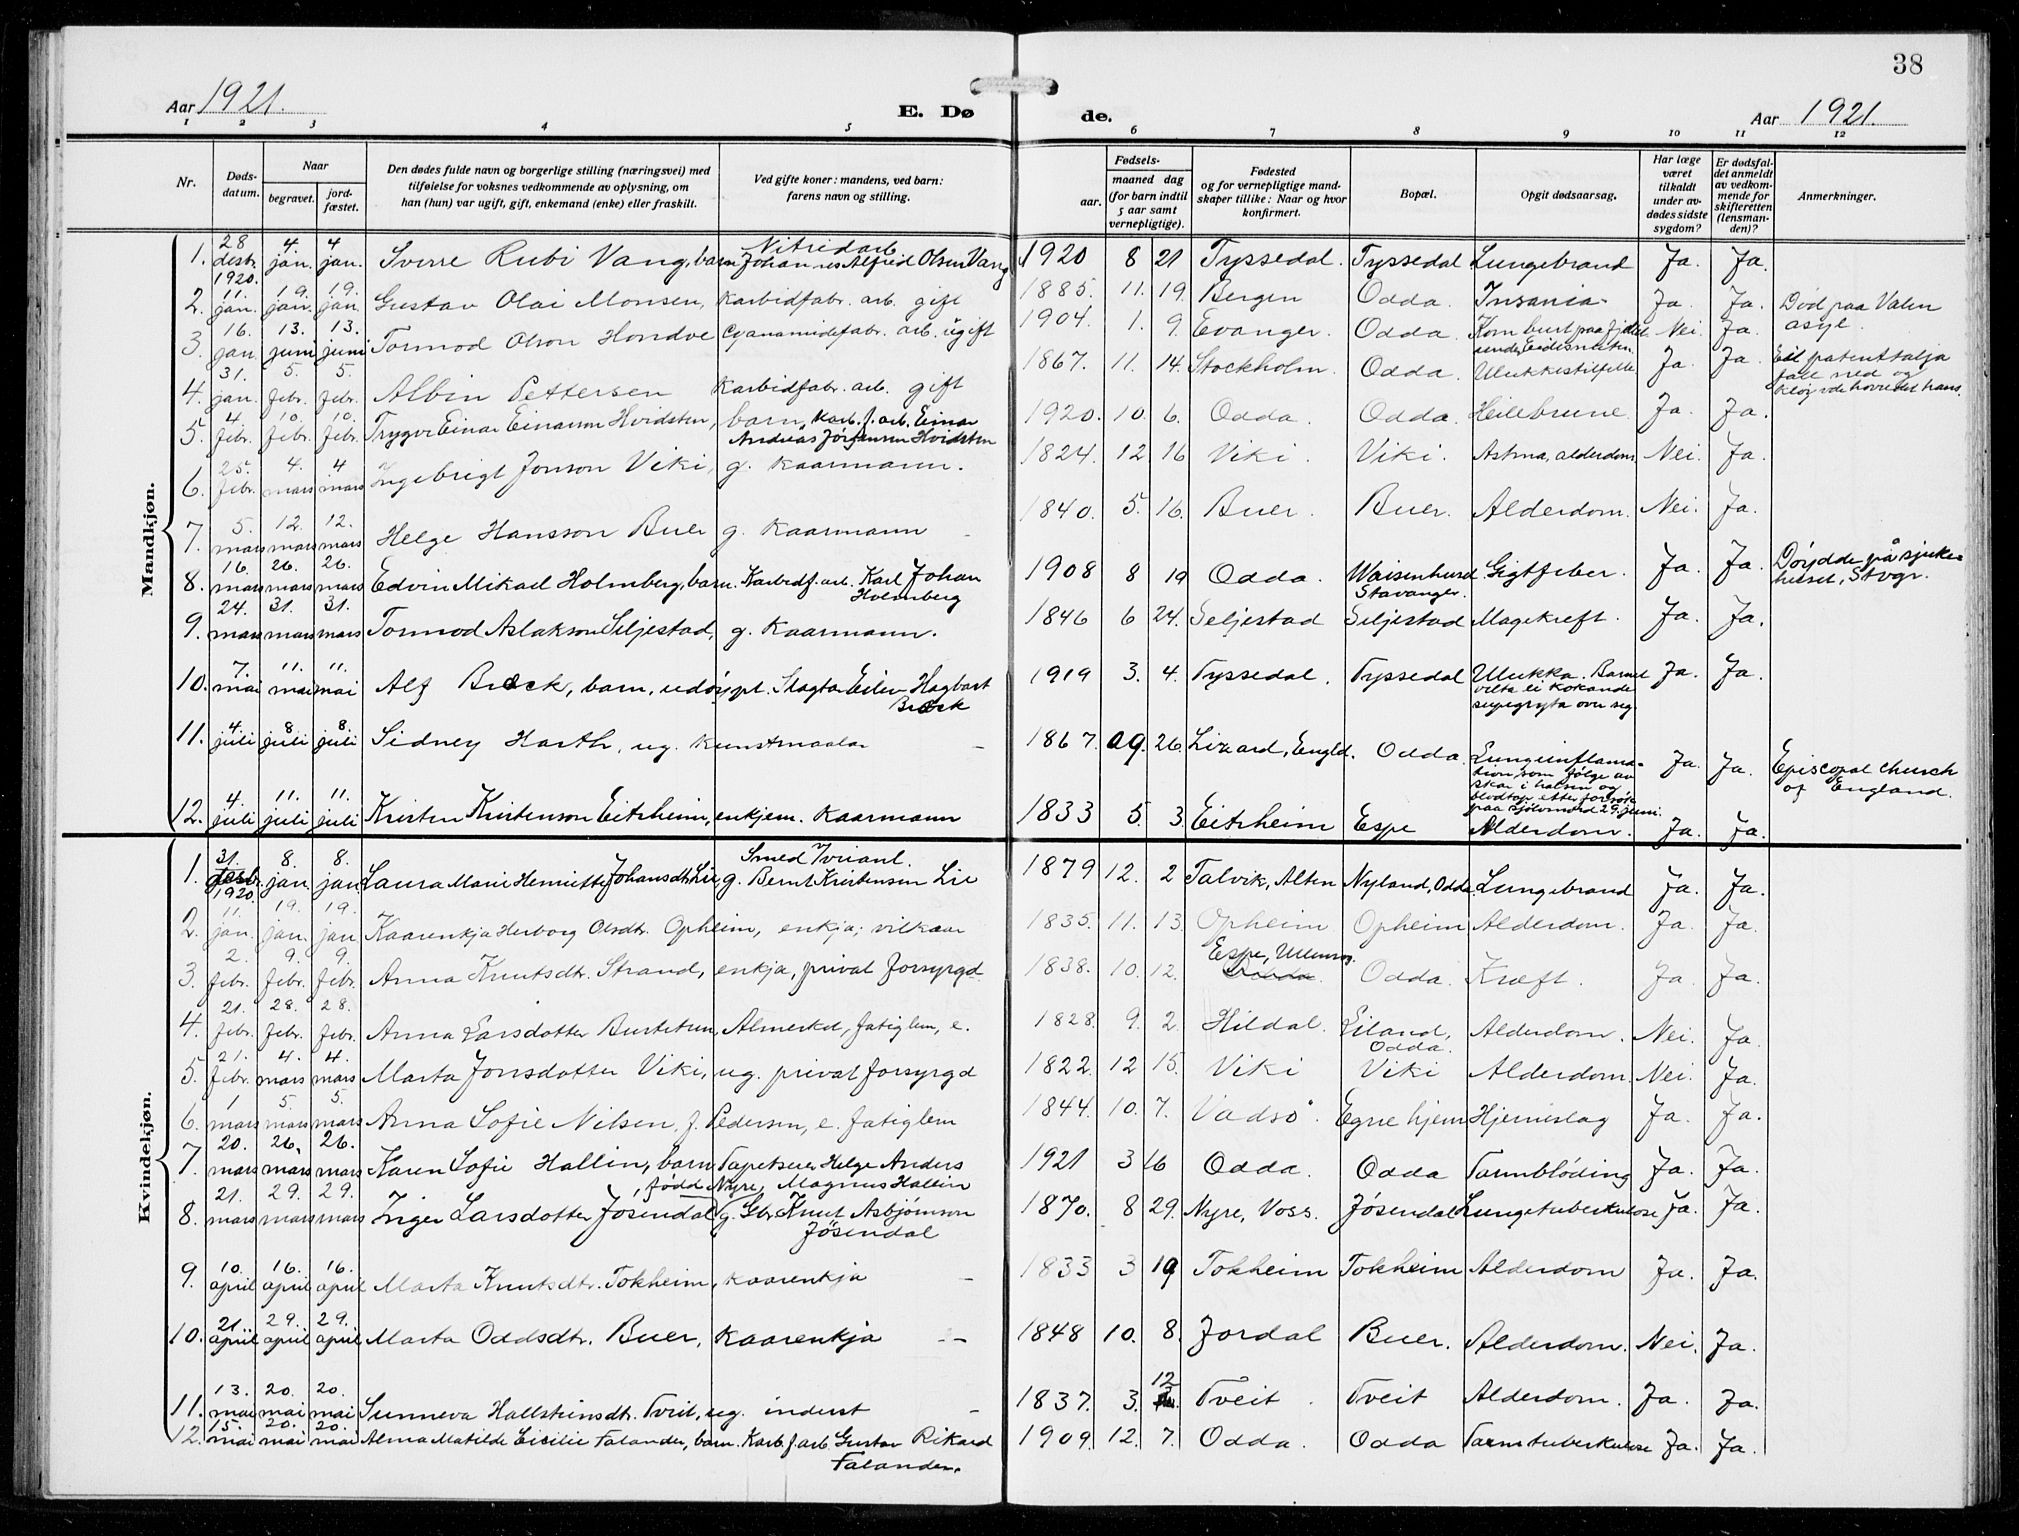 38
Aar 1921.
E. Døde.
Aar 1921.
1 2 3 4 5 6 7 8 9 10 11 12
Nr.
Døds-datum.
Naar
begravet.
jord-fæstet.
Den dødes fulde navn og borgerlige stilling (næringsvei) med
tilføielse for voksnes vedkommende av oplysning, om
han (hun) var ugift, gift, enkemand (enke) eller fraskilt.
Ved gifte koner: mandens, ved barn:
farens navn og stilling.
Fødsels-
aar.
maaned dag
(for barn indtil
5 aar samt
vernepligtige).
Fødested
og for vernepligtige mand-
skaper tillike: Naar og hvor
konfirmert.
Bopæl.
Opgit dødsaarsag.
Har læge
været
tilkaldt
under av-
dødes sidste
sygdom?
Er dødsfal-
det anmeldt
av vedkom-
mende for
skifteretten
(lensman-
den)?
Anmerkninger.
Mandkjøn.
1. 28 desbr. 1920. 4 jan. 4 jan. Sverre Rubi Vang, barn Nitridarb. Johannes Alfred Olsen Vang 1920 8 21 Tyssedal. Tyssedal Lungebrand Ja. Ja.
2. 11. jan. 19. jan. 19. jan. Gustav Olai Monsen, Karbidfabr. arb. gift 1885. 11. 19. Bergen Odda. Insania. Ja. Ja. Død paa Valen asyl.
3. 16. jan. 13. juni 13. juni Tormod Olson Hondve Cyanamidefabr. arb. ugift 1904. 1. 9. Evanger. Odda. Kom burt paa fjellet under Eidesnuten. Nei. Ja.
4. 31. jan. 5. febr. 5. febr. Albin Pettersen Karbidfabr. arb. gift 1867. 11. 14. Stockholm. Odda. Ulukkestilfelle Ja. Ja. Eit patenttalja fall ned og hovudet hans.
5. 4. febr. 10. febr. 10. febr. Trygve Einar Einarson Hvidsten, barn, Karb. f. arb. Einar Andreas Jørgensen Hvidsten 1920. 10. 6. Odda. Odda. Heilebrune. Ja. Ja.
6. 25. febr. 4. mars 4 mars Ingebrigt Jonson Viki, g. Kaarmann. 1824. 12 16 Viki. Viki. Astma, alderdom. Nei. Ja.
7. 5. mars 12. mars 12. mars Helge Hansson Buer g. Kaarmann 1840. 5. 16. Buer. Buer. Alderdom. Nei. Ja.
8. 16. mars 26. mars 26. mars Edvin Mikael Holmberg, barn. Karbidf. arb. Karl Johan Holmberg 1908 8 19 Odda. Waisenhused Stavanger. Gigtfeber. Ja. Ja. Døydde på sjuke-huset, Stvgr.
9. 24. mars 31. mars 31. mars Tormod Aslakson Seljestad, g. Kaarmann. 1846 6 24. Seljestad Seljestad Magekreft. Ja. Ja.
10. 7. mai 11. mai 11. mai Alf Bræck, barn, udøypt. Slagtar Eilev Hagbart Bræck 1919 3. 4. Tyssedal. Tyssedal Ulukka. Barnet velta ei kokande supegryta over seg. Ja. Ja.
11. 4. juli 8 juli 8. juli Sidney Harth, ug. Kunstmaalar 1867. 09. 26. Lizard, Engld. Odda. Lungeinflama-tion som følge av skar i halsen og blodtap etter forsøk paa sjølvmord 29. juni. Ja. Ja. Episcopal church of England.
12. 4. juli 11. juli 11. juli Kristen Kristenson Eitrheim, enkjem. Kaarmann 1833 5. 3. Eitrheim Espe Alderdom. Ja. Ja.
Kvindekjøn.
1. 31. desb. 1920 8. jan. 8. jan. Laura Marie Henriette Johansdtr. Lie g. Smed Bernt Kristensen Lie 1879 12. 2 Talvik, Alten Nyland, Odda. Lungebrand Ja. Ja.
2. 11. jan. 19. jan. 19. jan. Kaarenkja Herborg Olsdtr. Opheim, enkja; vilkaar 1835. 11. 13. Opheim Opheim Alderdom. Ja. Ja.
3. 2. febr. 9. febr. 9. febr. Anna Knutsdtr. Strand, enkja, privat forsyrgd 1838. 10. 12. Espe, Ullensv. Odda. Kræft. Ja. Ja.
4. 21. febr. 28. febr. 28. febr. Anna Larsdotter Bustetun, Almerket, fatiglem, e. 1828. 9. 2. Hildal. Eiland, Odda. Alderdom. Nei. Ja.
5. 21. febr. 4. mars 4. mars Marta Jonsdotter Viki, ug. privat forsyrgd 1822. 12 15. Viki Viki Alderdom. Nei. Ja.
6. 1 mars 5. mars 5. mars Anna Sofie Nilsen, f. Pedersen, e. fatiglem 1844. 10. 7. Vadsø. Egne hjem Hjerneslag Ja. Ja.
7. 20. mars 26. mars 26. mars Karen Sofie Hallin, barn Tapetserer Helge Anders Magnus Hallin 1921 3 16 Odda. Odda Tarmblöding Ja. Ja.
8. 21. mars 29. mars 29. mars Inger Larsdotter Jøsendal, fødd Nyre, g. Gbr. Knut Asbjørnson Jøsendal 1870. 8 29. Nyre, Voss. Jøsendal Lungetuberkulose Ja. Ja.
9. 10. april 16. april 16. april Marta Knutsdtr. Tokheim, Kaarenkja 1833 3 19 Tokheim Tokheim Alderdom Ja. Ja.
10. 21. april 29. april 29. april Marta Oddsdtr. Buer, Kaarenkja 1848 10. 8. Jordal Buer. Alderdom. Nei. Ja.
11. 13. mai 20. mai 20. mai Sunneva Hallsteinsdtr. Tveit, ug. inderst 1837. 3. 12 Tveit. Tveit Alderdom. Ja. Ja.
12. 15. mai 20. mai 20. mai Alma Matilde Cicilie Falander, barn. Karb. f. arb. Gustav Rikard Falander. 1909. 12. 7. Odda. Odda Tarmtuberkulose Ja. Ja.